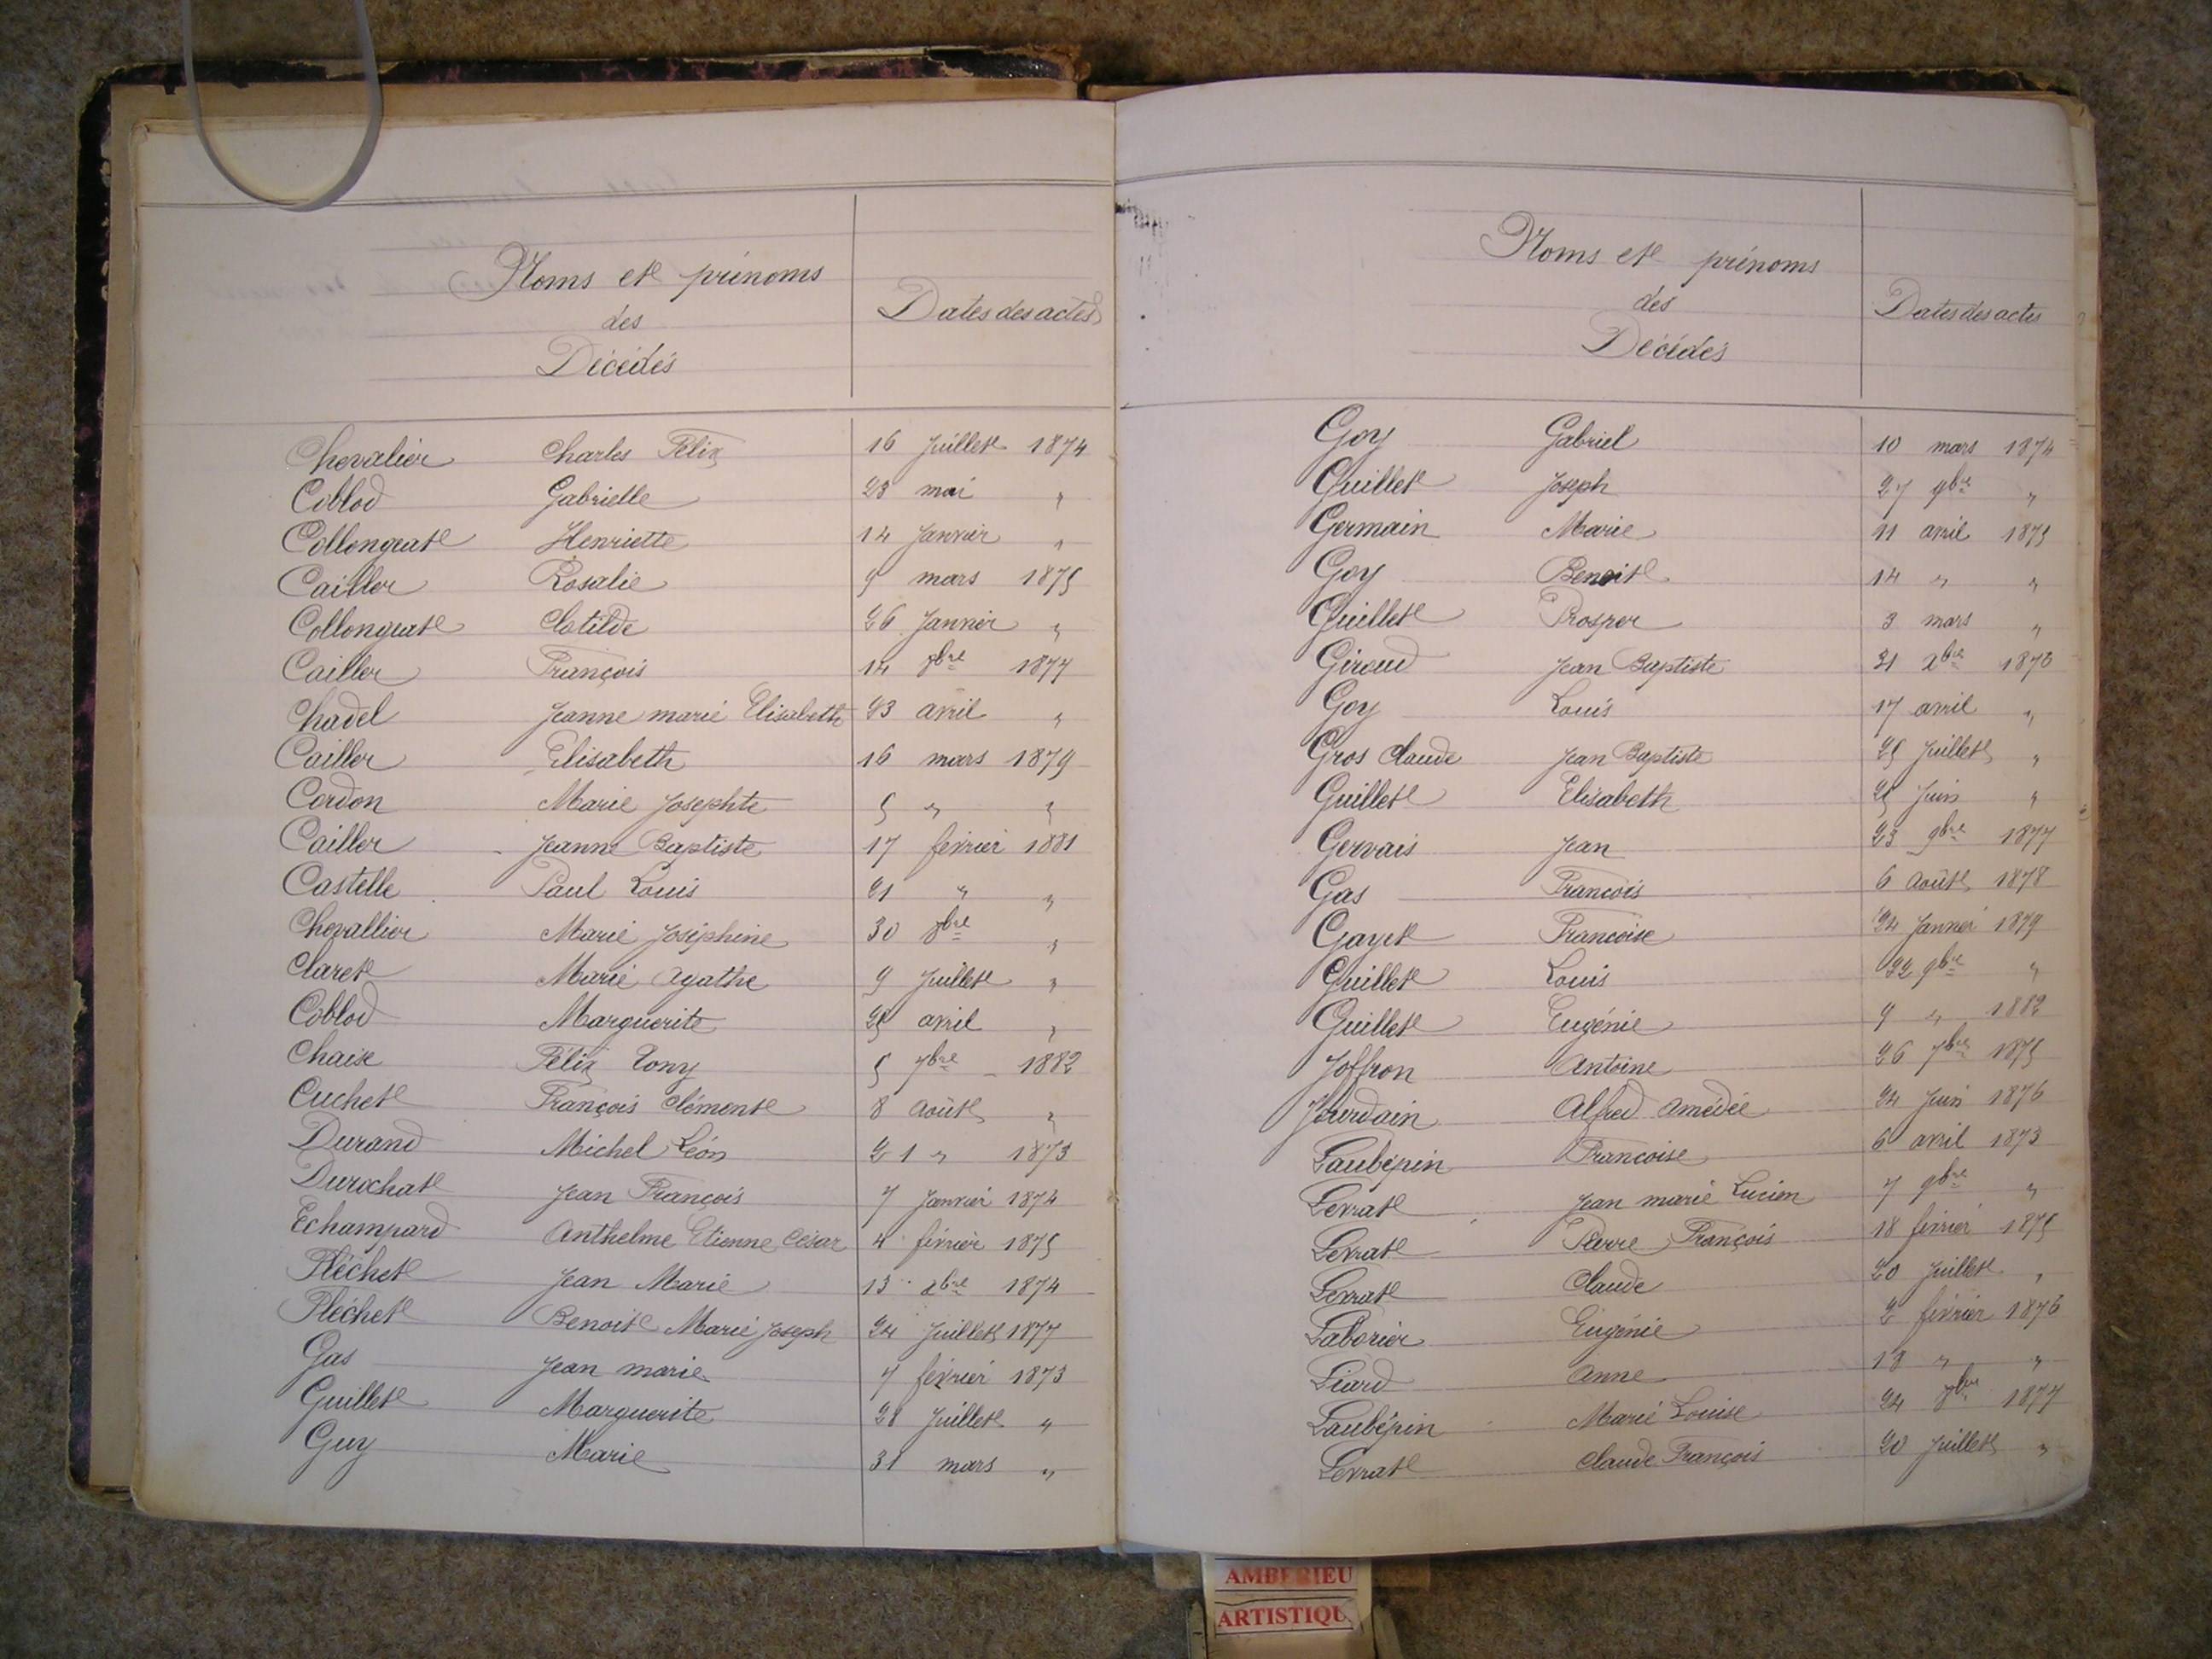 Noms et prénoms
des
Décédés
Dates des actes
Chevalier Charles Félix 16 Juillet 1874
Coblod Gabrielle 28 mai "
Collongeat Henriette 14 Janvier "
Cailler Rosalie 9 mars 1875
Collongeat Clotilde 26 Janvier "
Cailler François 14 8bre 1877
Chadel Jeanne marie Elisabeth 23 avril "
Cailler Elisabeth 16 mars 1879
Cordon Marie Josephte 5 " "
Cailler Jeanne Baptiste 17 février 1881
Castelle Paul Louis 21 " "
Chevallier Marie Joséphine 30 8bre "
Claret Marie Agathe 9 Juillet "
Coblod Marguerite 25 avril "
Chaise Félix Tony 5 7bre 1882
Cuchet François Clément 8 Août "
Durand Michel Léon 21 " 1873
Durochat Jean François 7 Janvier 1874
Echampard Anthelme Etienne César 4 février 1875
Fléchet Jean Marie 13 xbre 1874
Fléchet Benoit Marie Joseph 24 Juillet 1877
Gas Jean marie 7 février 1873
Guillet Marguerite 28 Juillet "
Guy Marie 31 mars "
Noms et prénoms
des
Décédés
Dates des actes
Goy Gabriel 10 mars 1874
Guillet Joseph 27 9bre "
Germain Marie 11 avril 1875
Goy Benoit 14 " "
Guillet Prosper 3 mars "
Giroud Jean Baptiste 31 xbre 1876
Goy Louis 17 avril "
Gros Claude Jean Baptiste 25 Juillet "
Guillet Elisabeth 25 Juin "
Gervais Jean 23 9bre 1877
Gas François 6 Août 1878
Gayet Françoise 24 Janvier 1879
Guillet Louis 22 9bre "
Guillet Eugénie 9 " 1882
Joffron Antoine 26 7bre 1875
Jourdain Alfred Amédée 24 Juin 1876
Laubépin Françoise 6 avril 1873
Levrat Jean marie Lucien 7 9bre "
Levrat Pierre François 18 février 1875
Levrat Claude 20 Juillet "
Laborier Eugénie 2 février 1876
Liard Anne 18 " "
Laubépin Marie Louise 24 8bre 1877
Levrat Claude François 20 Juillet "
AMBERIEU
ARTISTIQU